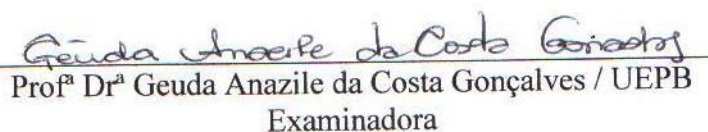 Geuda Anazile da Costa Gonçalves
Profª Drª Geuda Anazile da Costa Gonçalves / UEPB
Examinadora